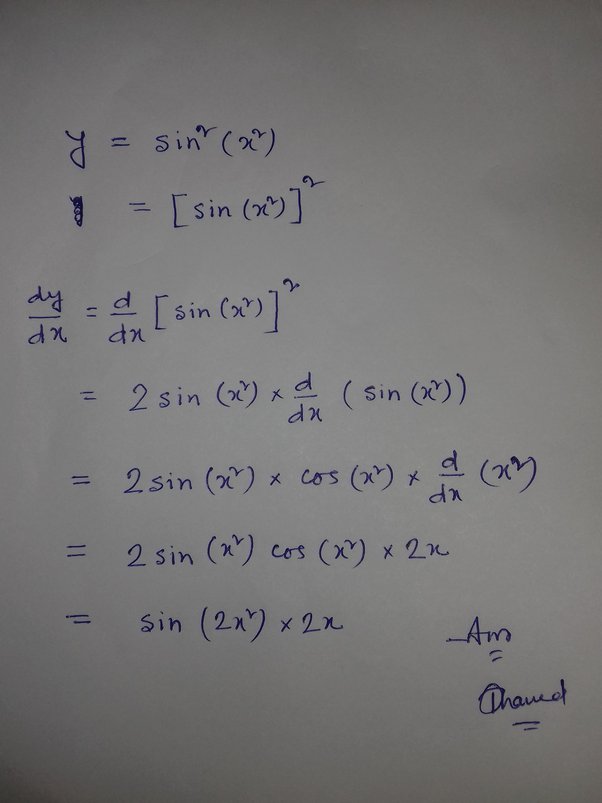 y = sin²(x²)
= [sin (x²)]²
dy/dx = d/dx [sin (x²)]²
= 2 sin (x²) × d/dx (sin (x²))
= 2 sin (x²) × cos (x²) × d/dx (x²)
= 2 sin (x²) cos (x²) × 2x
= sin (2x²) × 2x
Ans